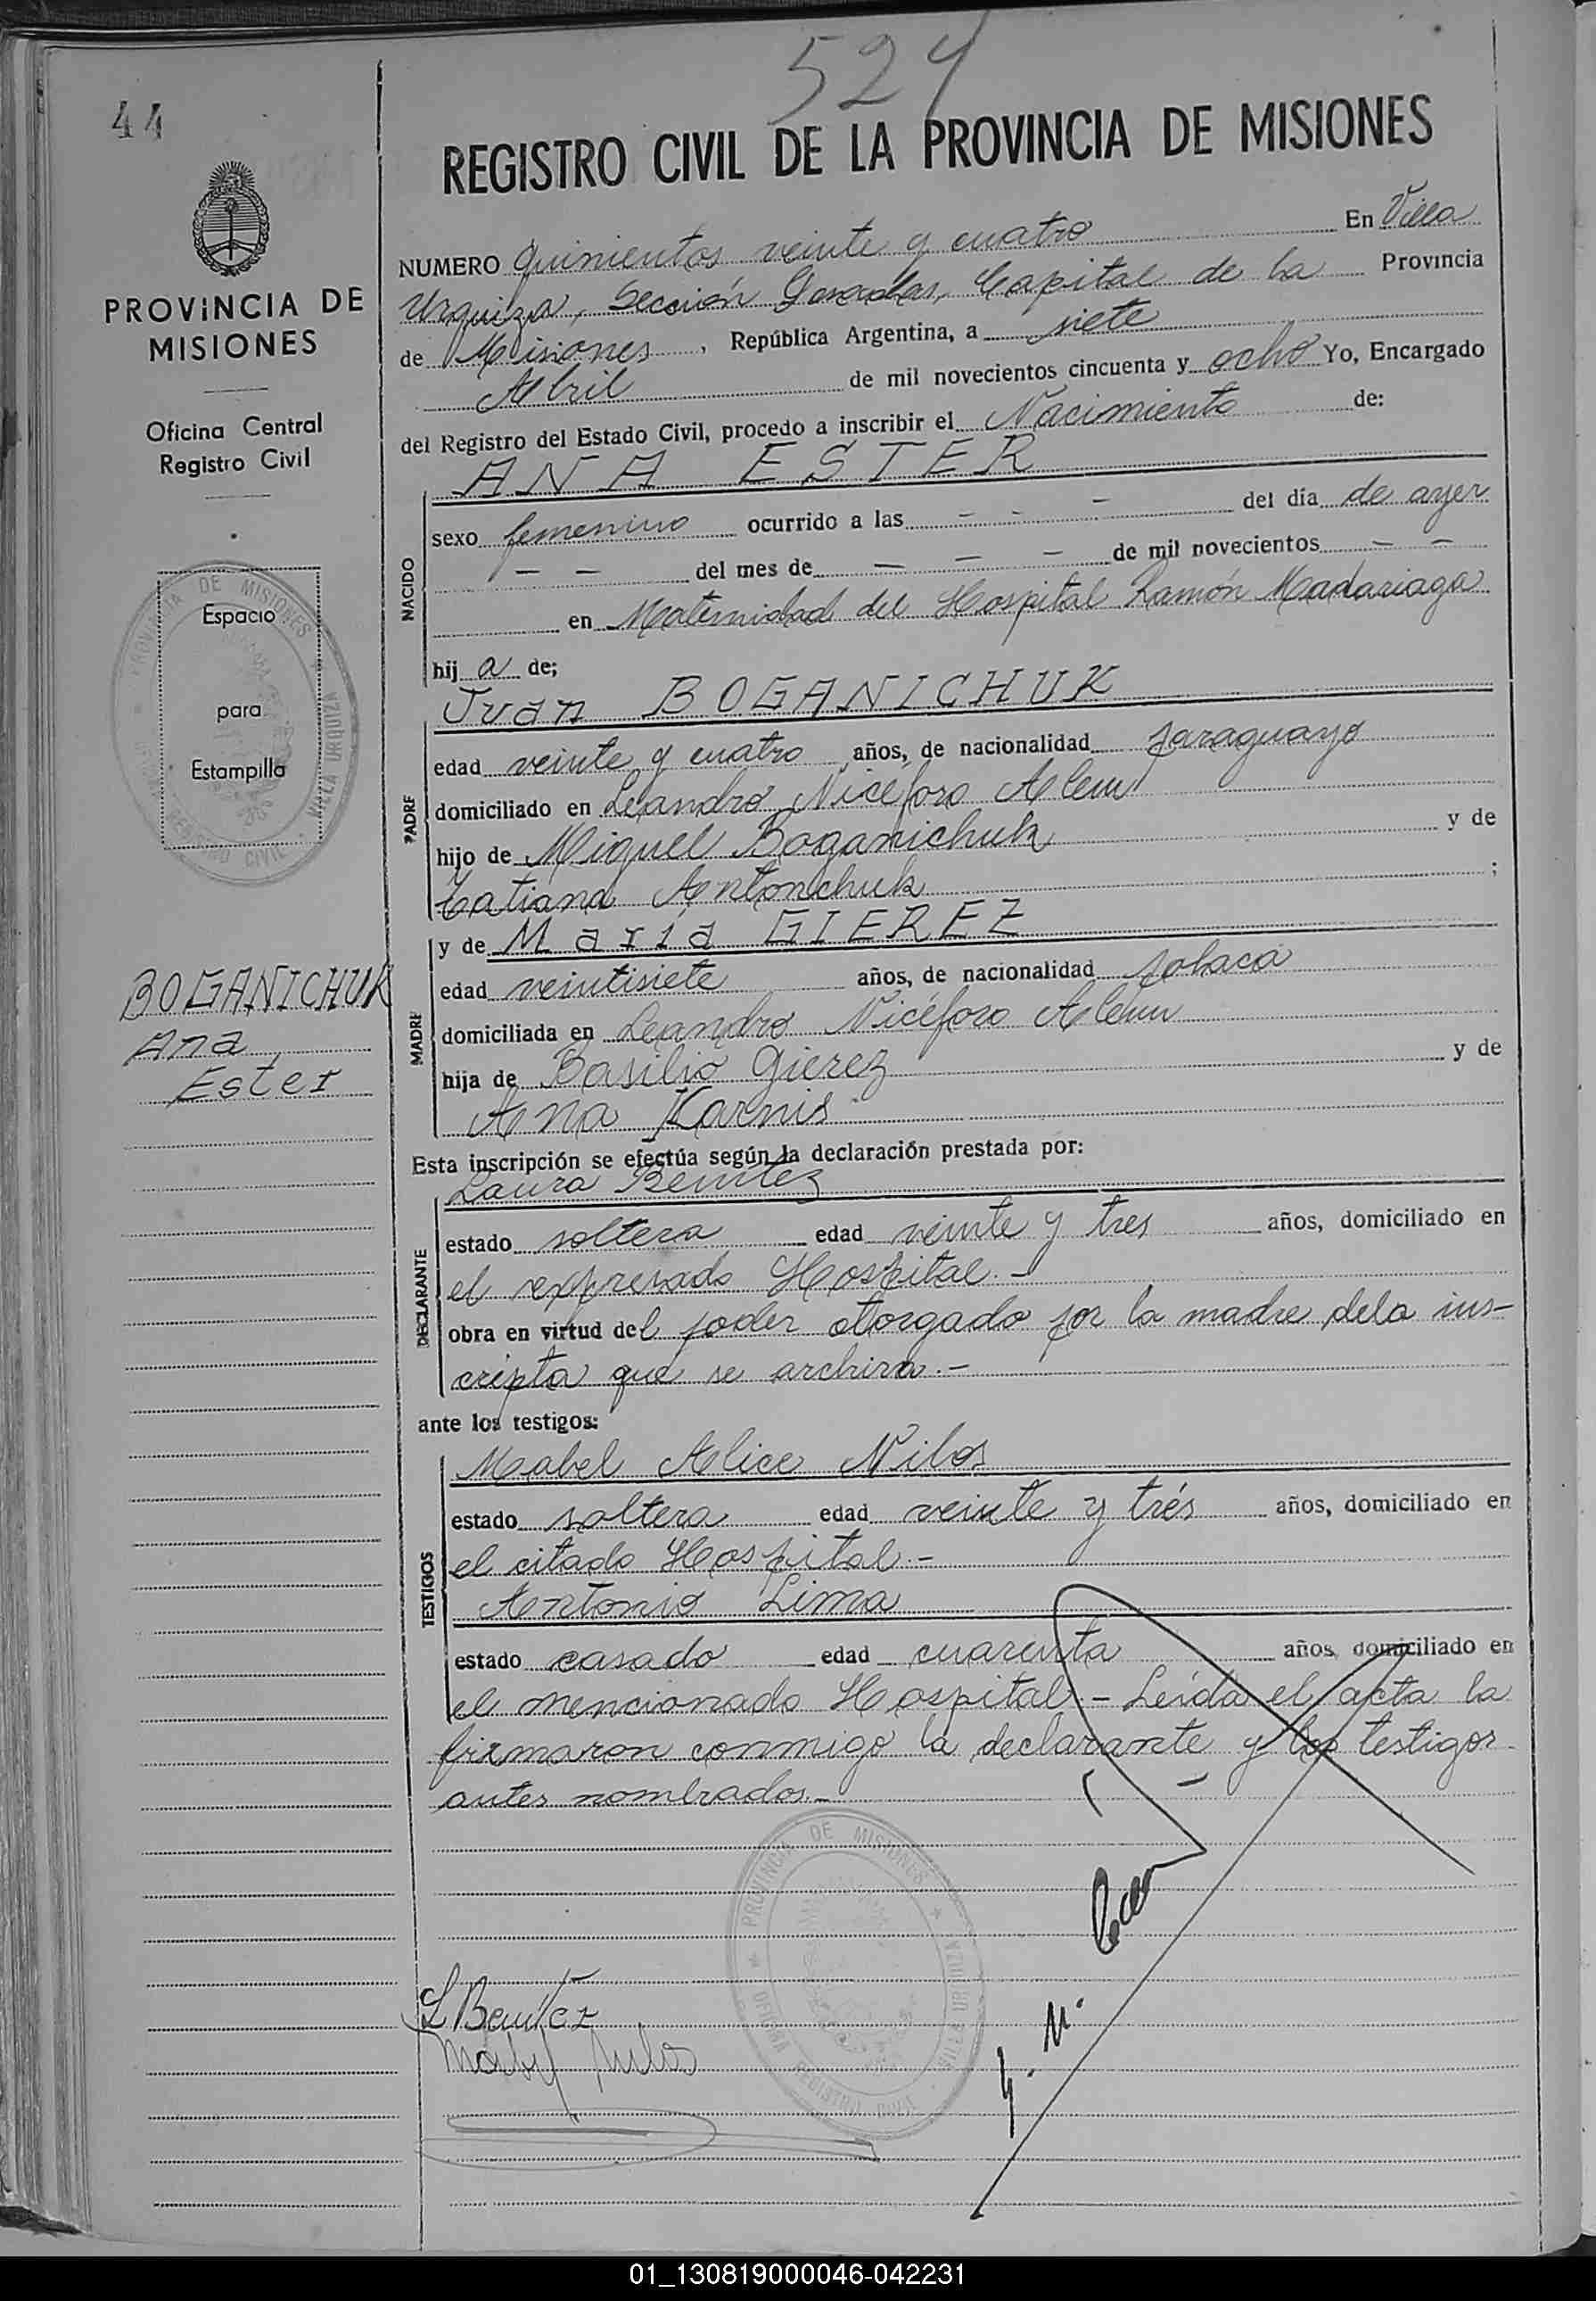 524
44
REGISTRO CIVIL DE LA PROVINCIA DE MISIONES
PROVINCIA DE
MISIONES
Oficina Central
Registro Civil
Espacio
para
Estampilla
PROVINCIA DE MISIONES
VILLA URQUIZA
REGISTRO CIVIL
BOGANICHUK
Ana
Ester
NUMERO quinientos veinte y cuatro En Villa
Urquiza, Sección Posadas, Capital de la Provincia
de Misiones, República Argentina, a siete
Abril de mil novecientos cincuenta y ocho Yo, Encargado
del Registro del Estado Civil, procedo a inscribir el Nacimiento de:
NACIDO
ANA ESTER
sexo femenino ocurrido a las - - - del día de ayer
- - del mes de - - - de mil novecientos - -
en Maternidad del Hospital Ramón Madariaga
hij a de;
PADRE
Juan BOGANICHUK
edad veinte y cuatro años, de nacionalidad paraguayo
domiciliado en Leandro Nicéforo Alem
hijo de Miguel Boganichuk y de
Tatiana Antonchuk ;
MADRE
y de María GIEREZ
edad veintisiete años, de nacionalidad polaca
domiciliada en Leandro Nicéforo Alem
hija de Basilio Gierez y de
Ana Karnis
Esta inscripción se efectúa según la declaración prestada por:
DECLARANTE
Laura Benítez
estado soltera edad veinte y tres años, domiciliado en
el expresado Hospital.-
obra en virtud del poder otorgado por la madre dela ins-
cripta que se archiva.-
ante los testigos:
TESTIGOS
Mabel Alice Nilos
estado soltera edad veinte y trés años, domiciliado en
el citado Hospital.-
Antonio Lima
estado casado edad cuarenta años, domiciliado en
el mencionado Hospital.- Leída el acta la
firmaron conmigo la declarante y los testigos
antes nombrados.-
PROVINCIA DE MISIONES
VILLA URQUIZA
OFICINA REGISTRO CIVIL
L Benítez
01_130819000046-042231